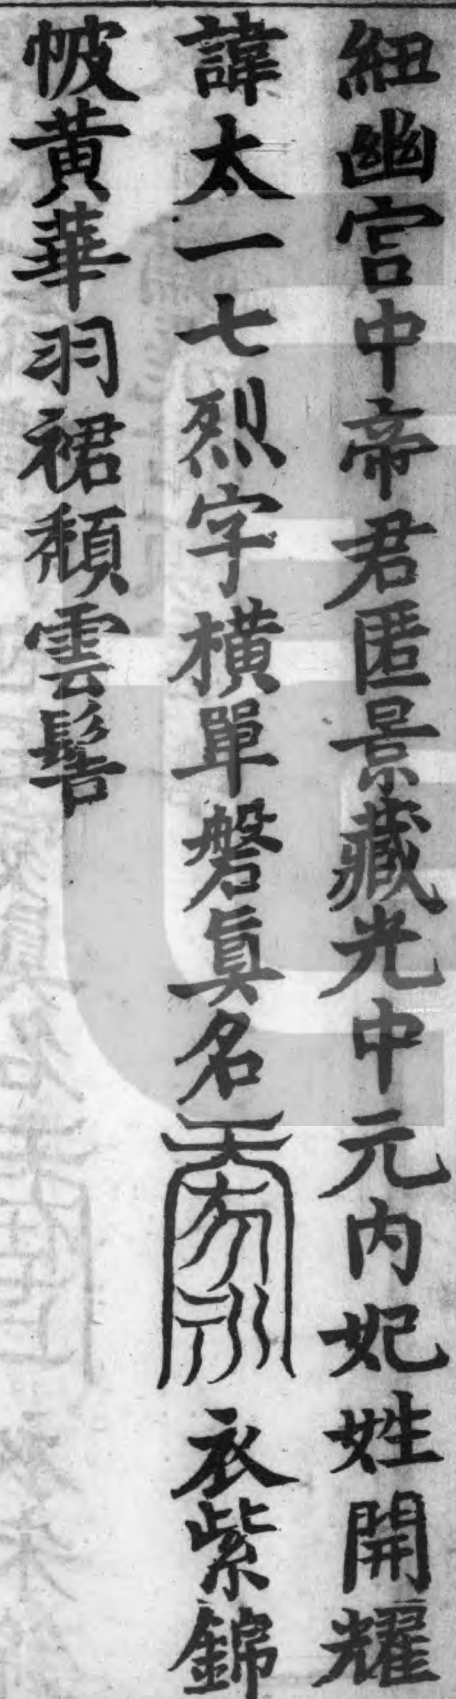 紐幽宫中帝君匿景藏光中元内妃姓開耀
諱太一七烈字橫單磐真名衣紫錦
帔黄華羽裙頹雲髻